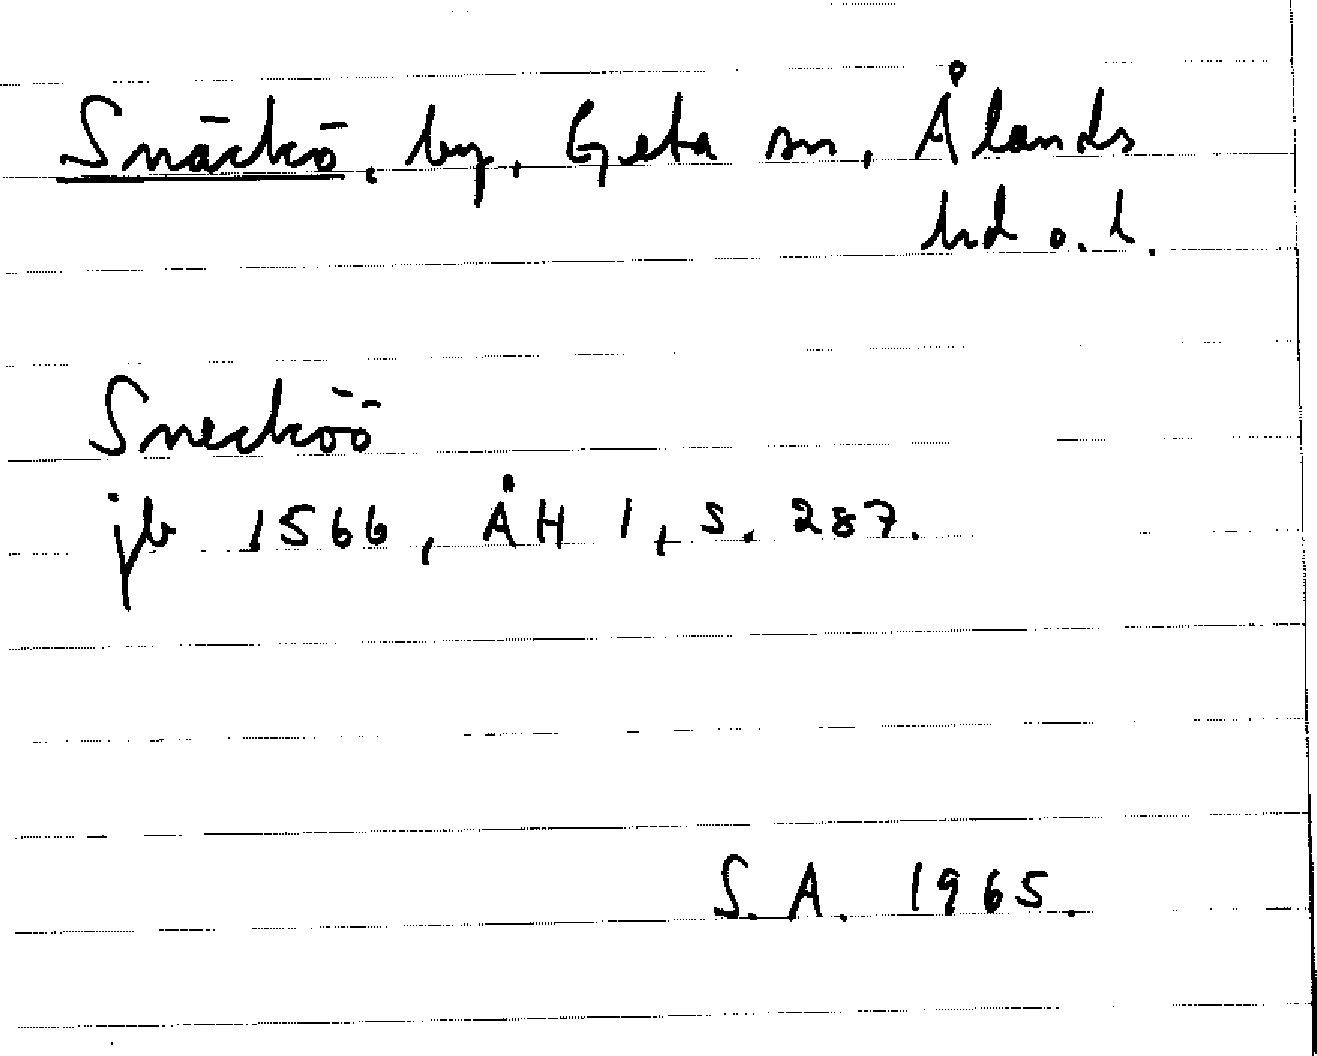 Snäckö, by, Geta sn, Ålands
hd o. l.
Snecköö
jb 1566, ÅH 1, s. 287.
S.A. 1965.